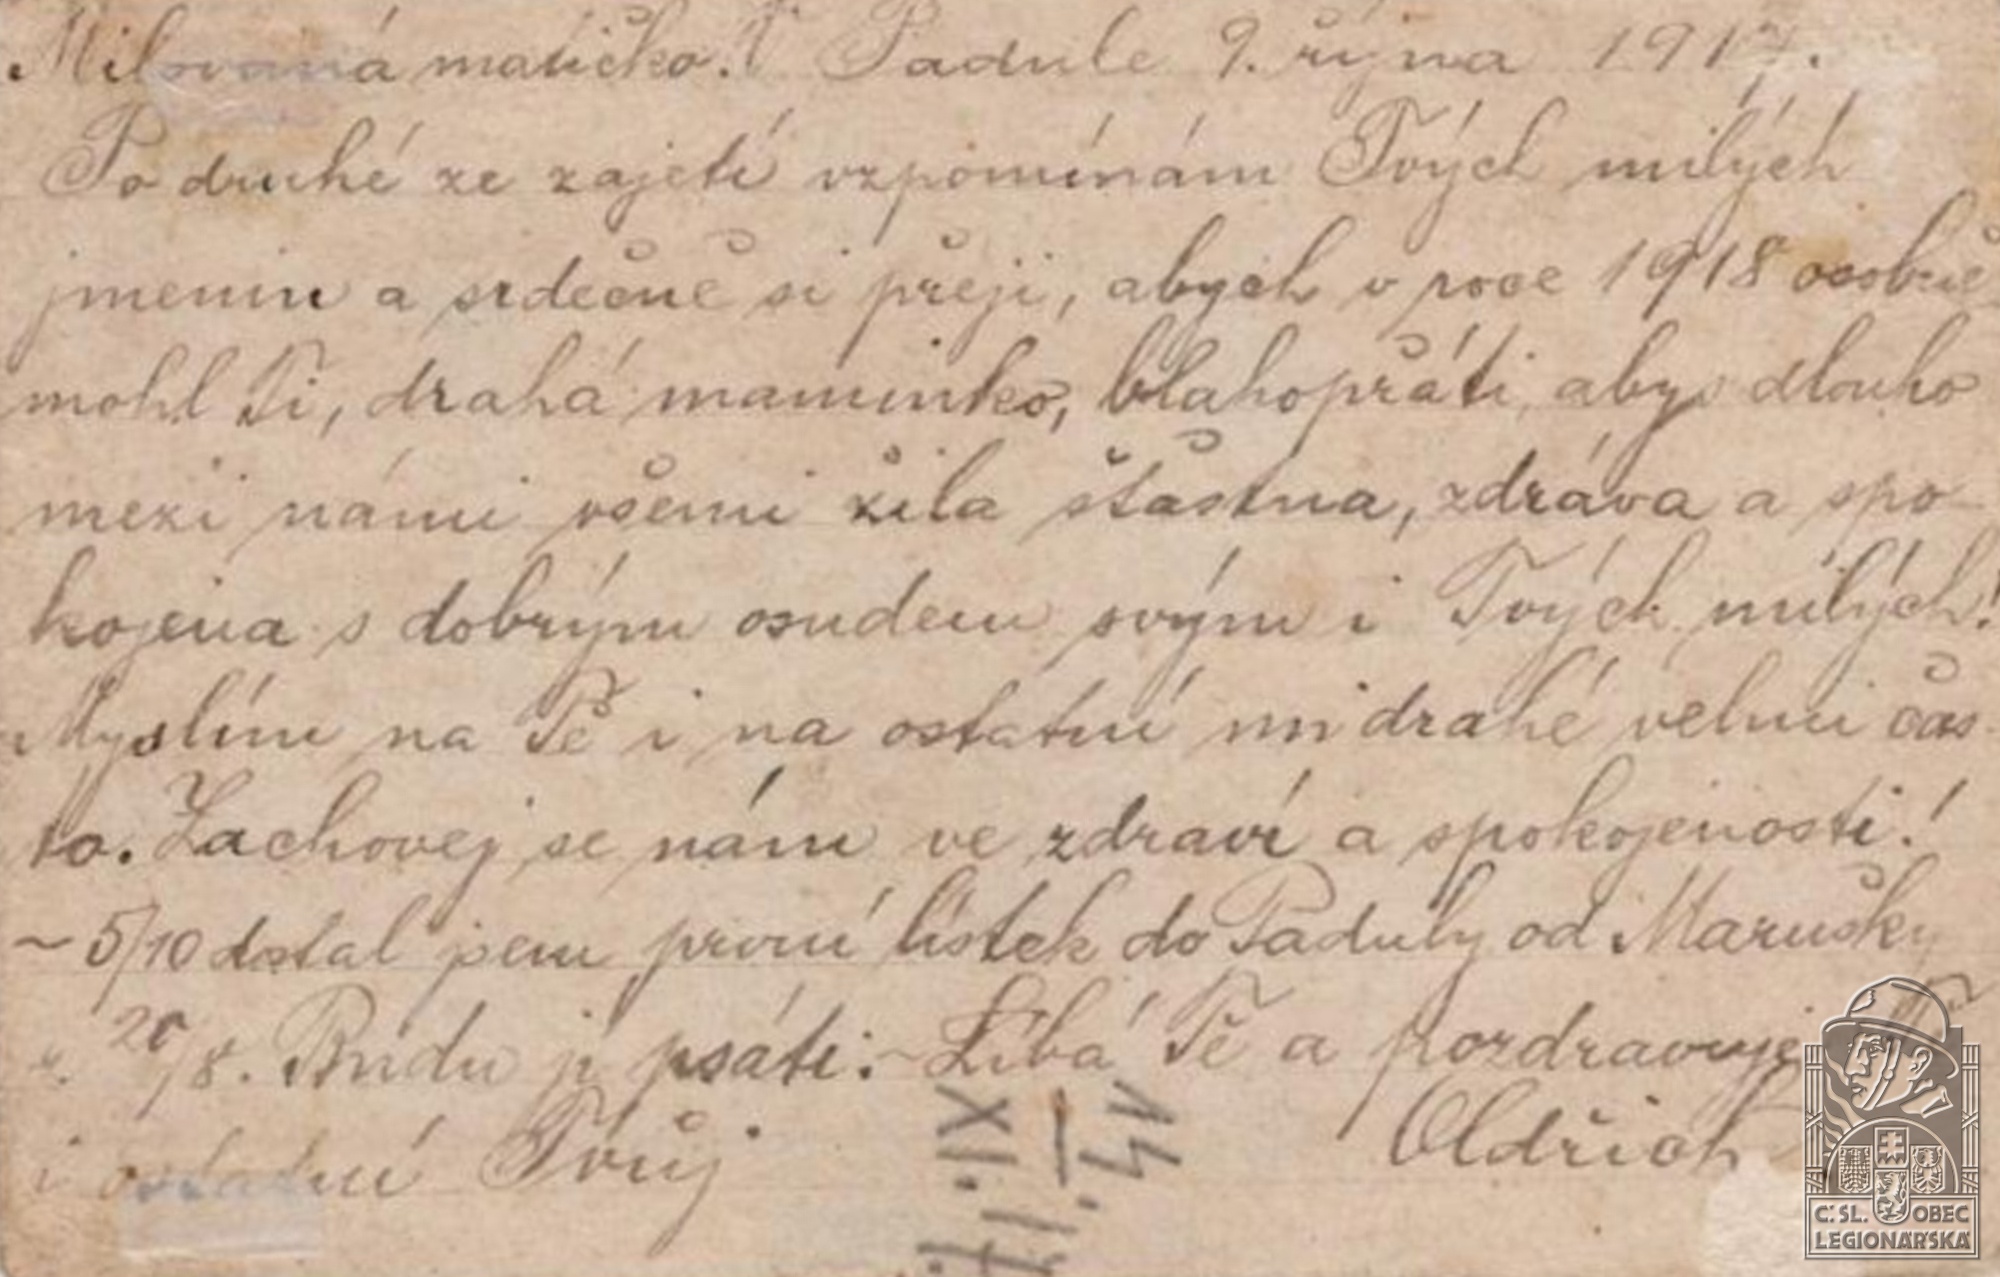 Milovaná matičko! Padule 9. října 1917.
Po druhé ze zajetí vzpomínám Tvých milých
jmenin a srdečně si přeji, abych v roce 1918 osobně
mohl Ti, drahá maminko, blahopřáti, abys dlouho
mezi námi všemi žila šťastna, zdráva a spo-
kojena s dobrým osudem svým i Tvých milých!
Myslím na Tě i na ostatní mi drahé velmi čas-
to. Zachovej se nám ve zdraví a spokojenosti!
~ 5/10 dostal jsem první lístek do Paduly od Marušky
z. 20/8. Budu jí psáti. ~ Líbá Tě a pozdravuje
i ostatní Tvůj Oldřich
Č.SL. OBEC
LEGIONÁŘSKÁ